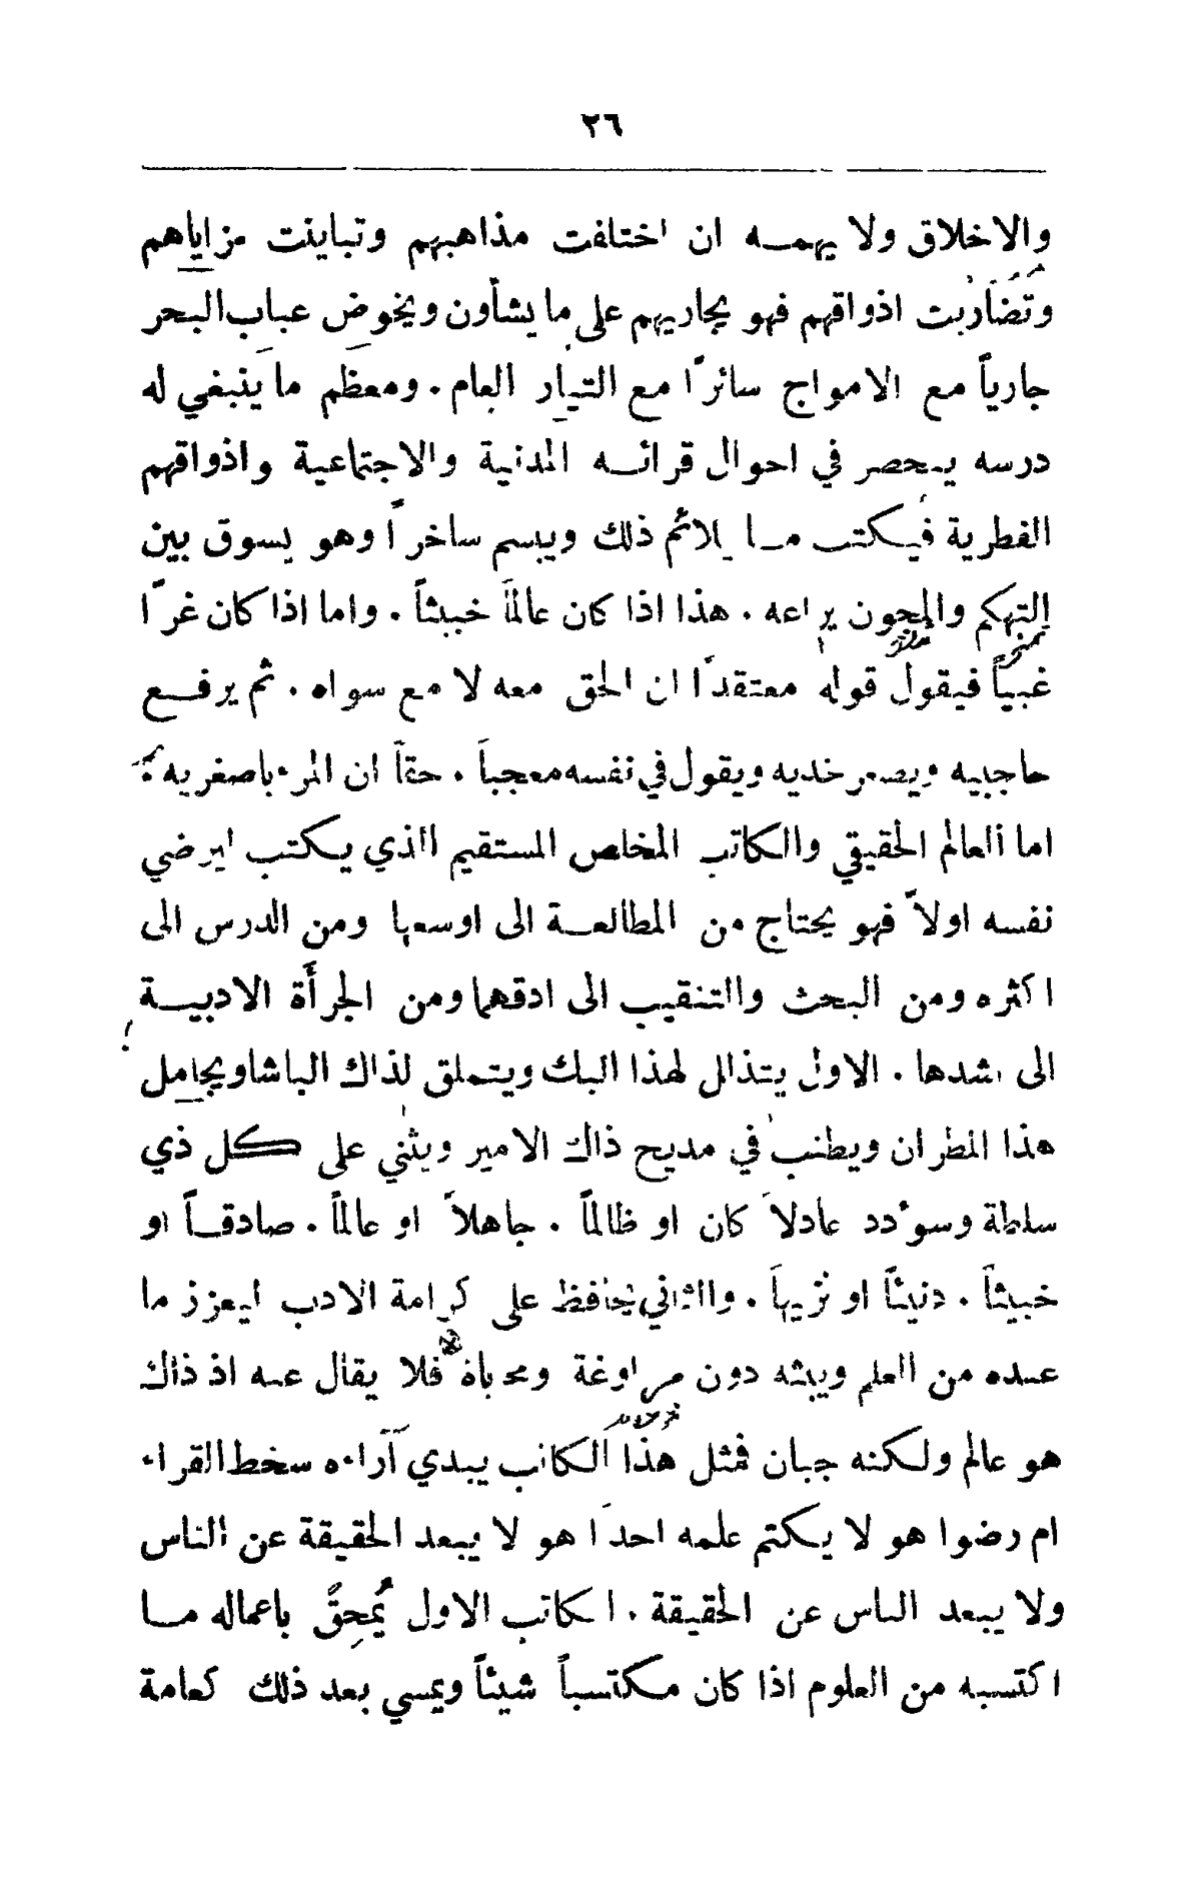 ٢٦
والاخلاق ولا يهمـــه ان اختلفت مذاهبهم وتباينت مزاياهم
وتضاربت اذواقهم فهو يجاريهم على ما يشأون ويخوض عباب البحر
جارياً مع الامواج سائرًا مع التيار العام . ومعظم ما ينبغي له
درسه ينحصر في احوال قرائـــه المدنية والاجتماعية واذواقهم
الفطرية فيكتب مــا يلائم ذلك ويبسم ساخرًا وهو يسوق بين
التهكم والمجون يراعه . هذا اذا كان عالماً خبيثاً . واما اذا كان غرًا
غبياً فيقول قوله معتقدًا ان الحق معه لا مع سواه . ثم يرفــع
حاجبيه ويصعر خديه ويقول في نفسه معجباً . حقاً ان المرء باصغريه
اما العالم الحقيقي والكاتب المخلص المستقيم الذي يكتب ليرضي
نفسه اولاً فهو يحتاج من المطالعــة الى اوسعها ومن الدرس الى
اكثره ومن البحث والتنقيب الى ادقهما ومن الجرأة الادبيــة
الى اشدها . الاول يتذلل لهذا البك ويتملق لذاك الباشا ويجامل
هذا المطران ويطنب في مديح ذاك الامير ويثني على كل ذي
سلطة وسوءدد عادلاً كان او ظالماً . جاهلاً او عالماً . صادقــاً او
خبيثاً . دنيئاً او نزيهاً . والثاني يحافظ على كرامة الادب ليعزز ما
عنده من العلم ويبثه دون مراوغة ومحاباة فلا يقال عنه اذ ذاك
هو عالم ولكنه جبان فمثل هذا الكاتب يبدي آراءه سخط القراء
ام رضوا هو لا يكتم علمه احدًا هو لا يبعد الحقيقة عن الناس
ولا يبعد الناس عن الحقيقة . الكاتب الاول يُمحِقُ باعماله مــا
اكتسبه من العلوم اذا كان مكتسباً شيئاً ويمسي بعد ذلك كعامة